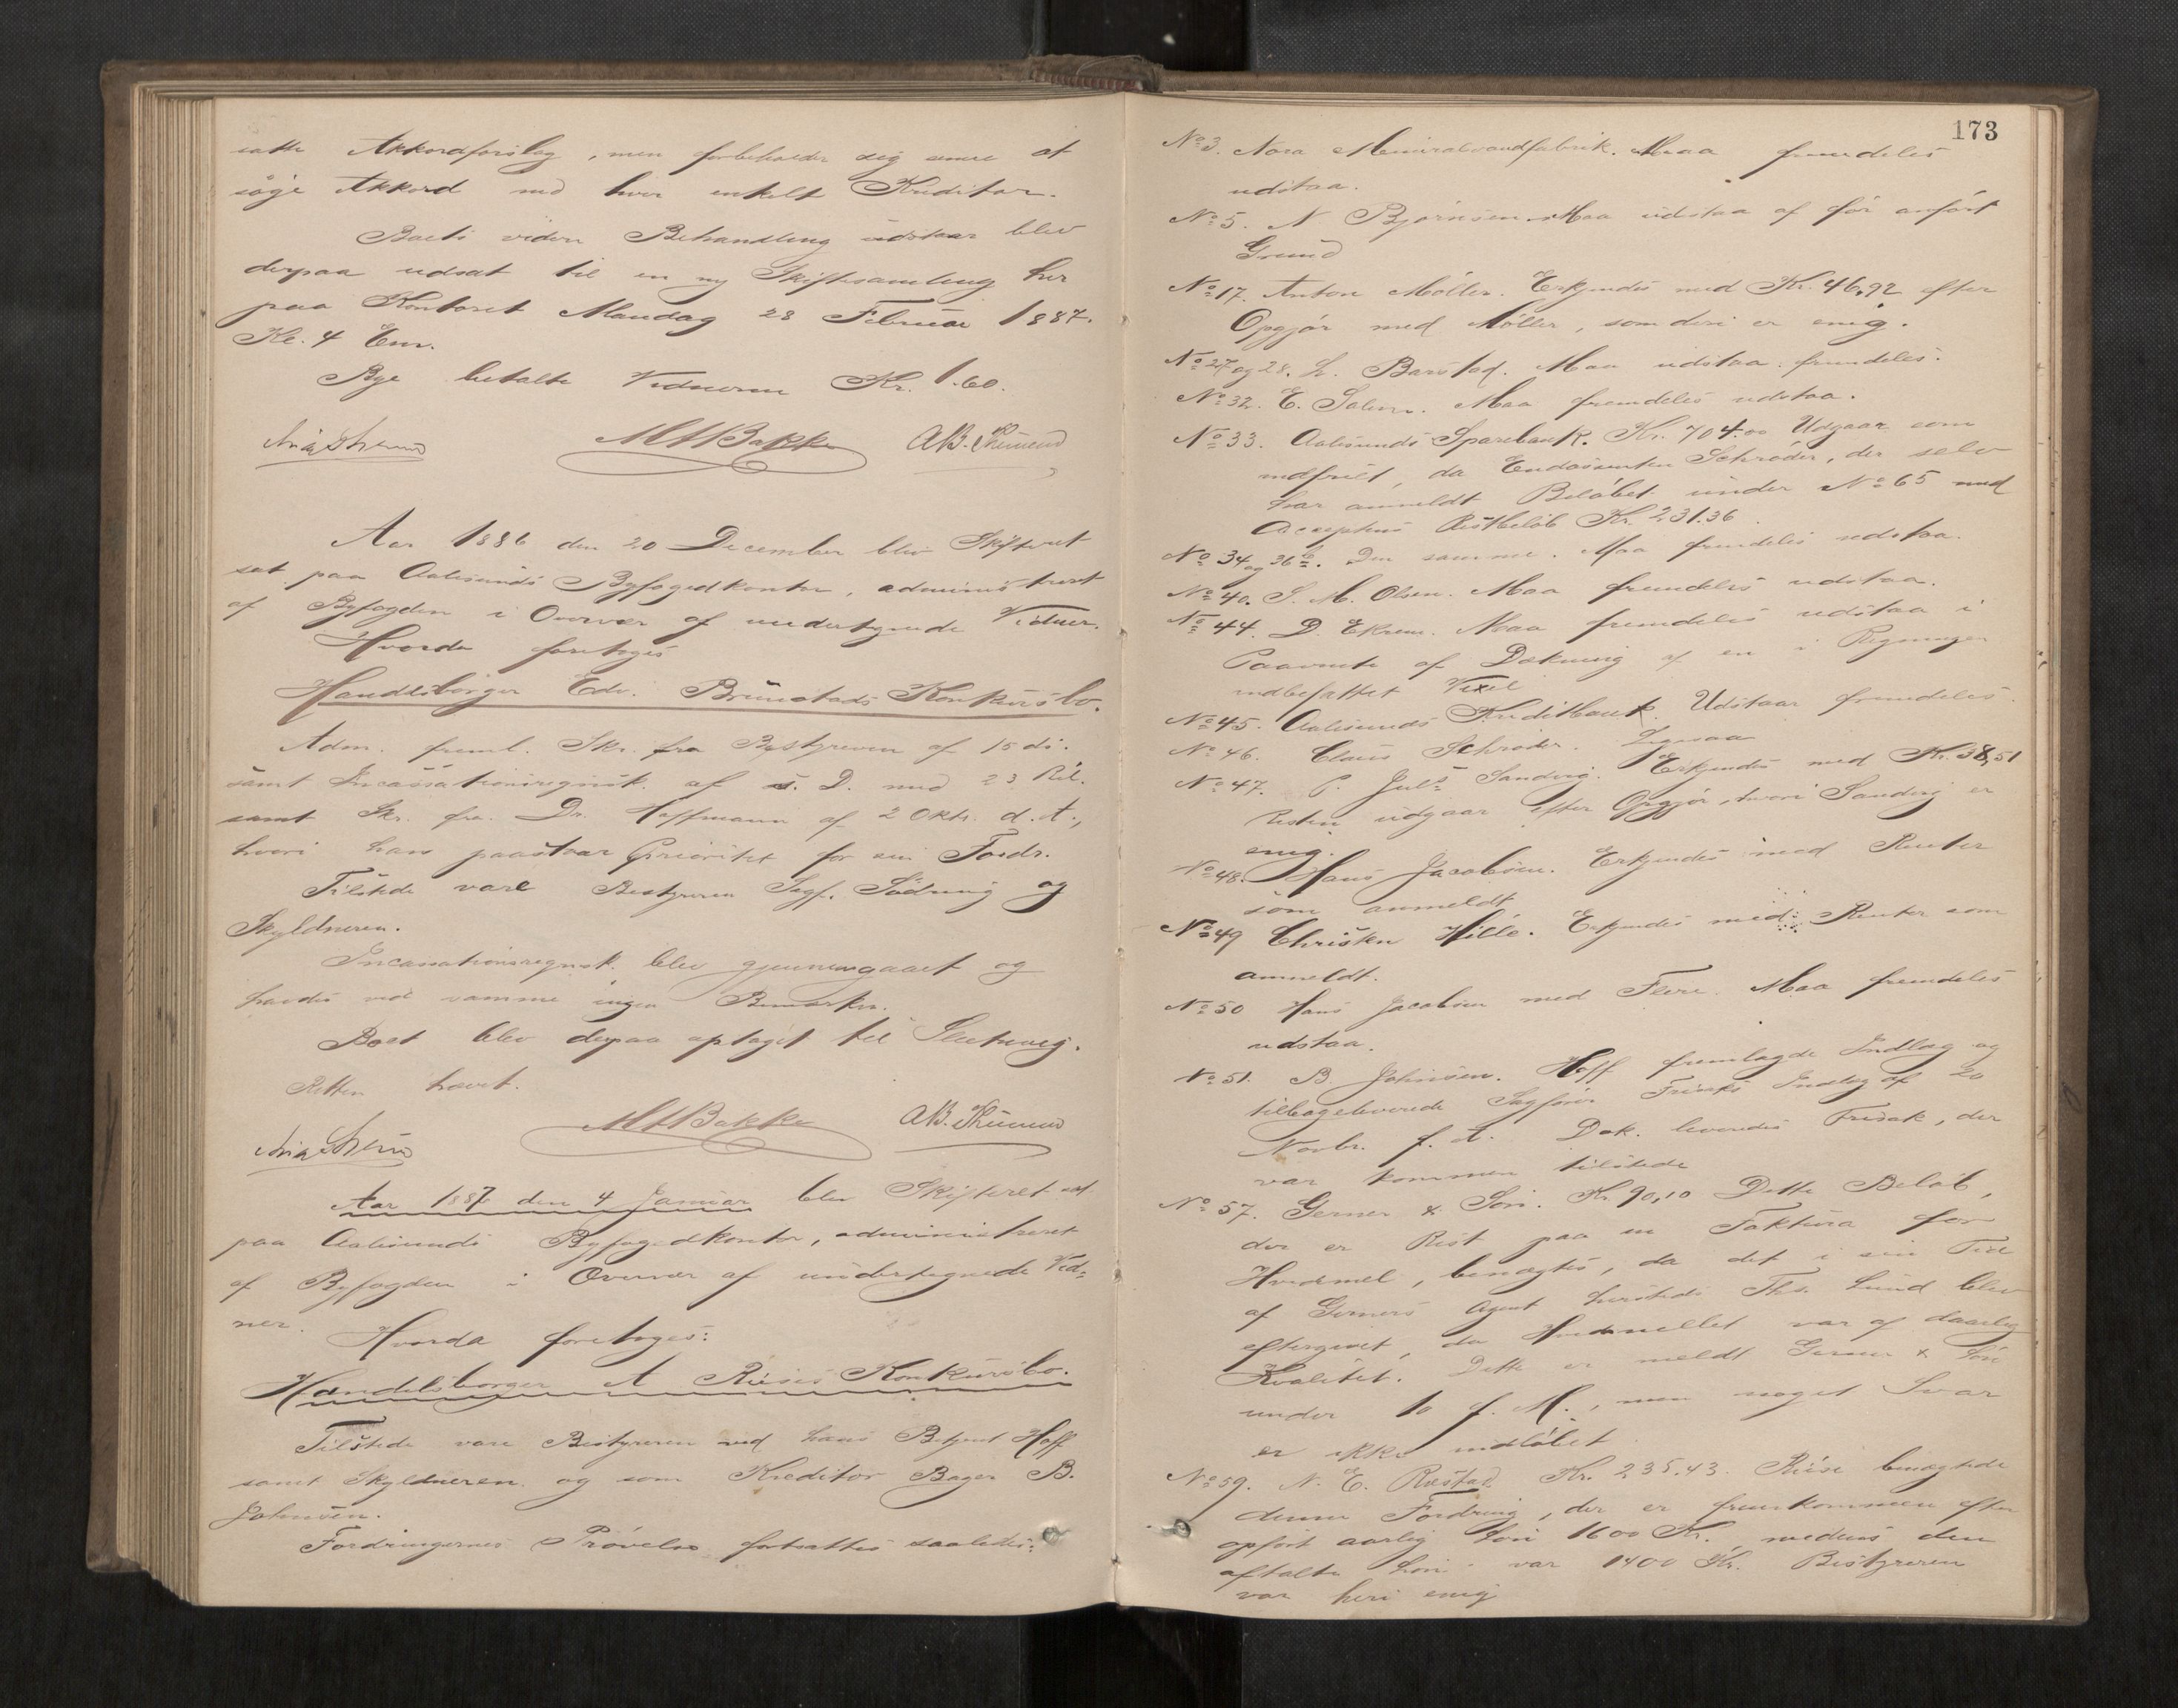 satte Akkordforslag, men forbeholder sig senere at
søge Akkord med hver enkelt Kreditor.
Boets videre Behandling udstaar blev
derpaa udsat til en ny Skiftesamling her
paa Kontoret Mandag 28 Februar 1887.
Kl. 4 Em.
Bye betalte Vidnerne Kr. 1.60.
MHBakke A.B.
Aar 1886 den 20 December blev Skifteret
sat paa Aalesunds Byfogedkontor, administreret
af Byfogden i Overvær af undertegnede Vidner.
Hvorda foretoges
Handelsborger Edv. Brunstads Konkursbo.
Adm. freml. Skr. fra Bestyreren af 15 ds.
samt Incassationsregnsk. af s. D. med 23 Bil.
samt Skr. fra Dr. Hoffmann af 2 Oktr. d. A.,
hvori han paastaar Prioritet for sin Fordr.
Tilstede vare Bestyreren Sagf. Sødring og
Skyldneren.
Incassationsregnsk. blev gjennemgaaet og
havdes ved samme ingen Bemærkn.
Boet blev derpaa optaget til Slutning.
Retten hævet.
MHBakke A.B.
Aar 1887 den 4 Januar blev Skifteret sat
paa Aalesunds Byfogedkontor, administreret
af Byfogden i Overvær af undertegnede Vid-
ner.
Hvorda foretoges:
Handelsborger A Riises Konkursbo.
Tilstede vare Bestyreren ved hans Betjent Hoff
samt Skyldneren og som Kreditor Bager B.
Johnsen.
Fordringernes Prøvelse fortsattes saaledes:
173
No 3. Nora Mineralvandfabrik. Maa fremdeles
udstaa.
No 5. N Bjørnsen. Maa udstaa af før anført
Grund
No 17. Anton Møller. Erkjendes med Kr. 46,92 efter
Opgjør med Møller, som deri er enig.
No 27 og 28. L. Barstad. Maa udstaa fremdeles.
No 32. E. Solem. Maa fremdeles udstaa.
No 33. Aalesunds Sparebank. Kr. 704.00 Udgaar som
indfriet, da Endossenten Schrøder, der selv
har anmeldt Beløbet under No 65 med
Acceptens Restbeløb Kr. 231.36.
No 34 og 36. Den samme. Maa fremdeles udstaa.
No 40. S. M. Olsen. Maa fremdeles udstaa.
No 44. D. Ekrem. Maa fremdeles udstaa i
Paavente af Dækning af en i Regningen
indbefattet Vexel
No 45. Aalesunds Kreditbank. Udstaar fremdeles.
No 46. Claus Schrøder. Ligesaa
No 47. P. Juls Sandvig. Erkjendes med Kr. 38,51
Resten udgaar efter Opgjør, hvori Sandvig er
enig.
No 48. Hans Jacobsen. Erkjendes med Renter
som anmeldt
No 49 Christen Hille. Erkjendes med Renter som
anmeldt.
No 50 Hans Jacobsen med Flere. Maa fremdeles
udstaa.
No 51. B Johnsen. Hoff fremlagde Indlæg og
tilbageleverede Sagfører Frisaks Indlæg af 20
Novbr. f. A. Dok. leveredes Frisak, der
var kommen tilstede
No 57. Gerner & Søn. Kr. 90,10 Dette Beløb,
der er Rest paa en Faktura for
Hvedemel, benægtes, da det i sin Tid
af Gerners Agent hersteds Ths. Lund blev
eftergivet, da Hvedemellet var af daarlig
Kvalitet. Dette er meldt Gerner & Søn
under 10 f. M., men noget Svar
er ikke indløbet
No 59. N. E. Røstad. Kr. 235.43. Riise benægtede
denne Fordring, der er fremkommen efter
opført aarlig Løn 1600 Kr., medens den
aftalte Løn var 1400 Kr. Bestyreren
var heri enig